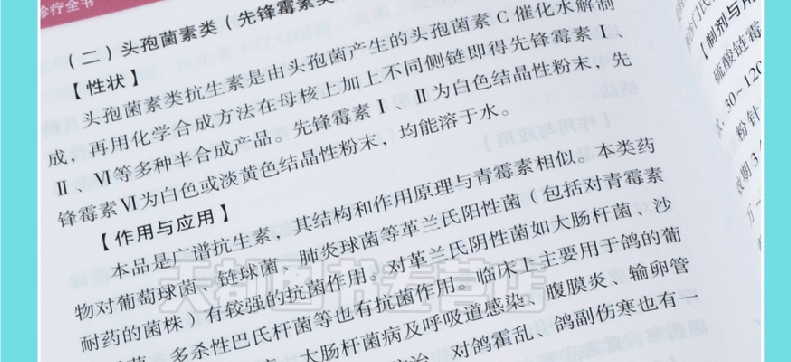 诊疗全书
（二）头孢菌素类（先锋霉素类
【性状】
头孢菌素类抗生素是由头孢菌产生的头孢菌素C催化水解制
成，再用化学合成方法在母核上加上不同侧链即得先锋霉素Ⅰ、
Ⅱ、Ⅵ等多种半合成产品。先锋霉素Ⅰ、Ⅱ为白色结晶性粉末，先
锋霉素Ⅵ为白色或淡黄色结晶性粉末，均能溶于水。
【作用与应用】
本品是广谱抗生素，其结构和作用原理与青霉素相似。本类药
物对葡萄球菌、链球菌、肺炎球菌等革兰氏阳性菌（包括对青霉素
耐药的菌株）有较强的抗菌作用。对革兰氏阴性菌如大肠杆菌、沙
多杀性巴氏杆菌等也有抗菌作用。临床上主要用于鸽的葡
大肠杆菌病及呼吸道感染、腹膜炎、输卵管
对鸽霍乱、鸽副伤寒也有一
【制剂与用
硫酸链霉
30~120
粉针
效期3
万
天都图书专营店